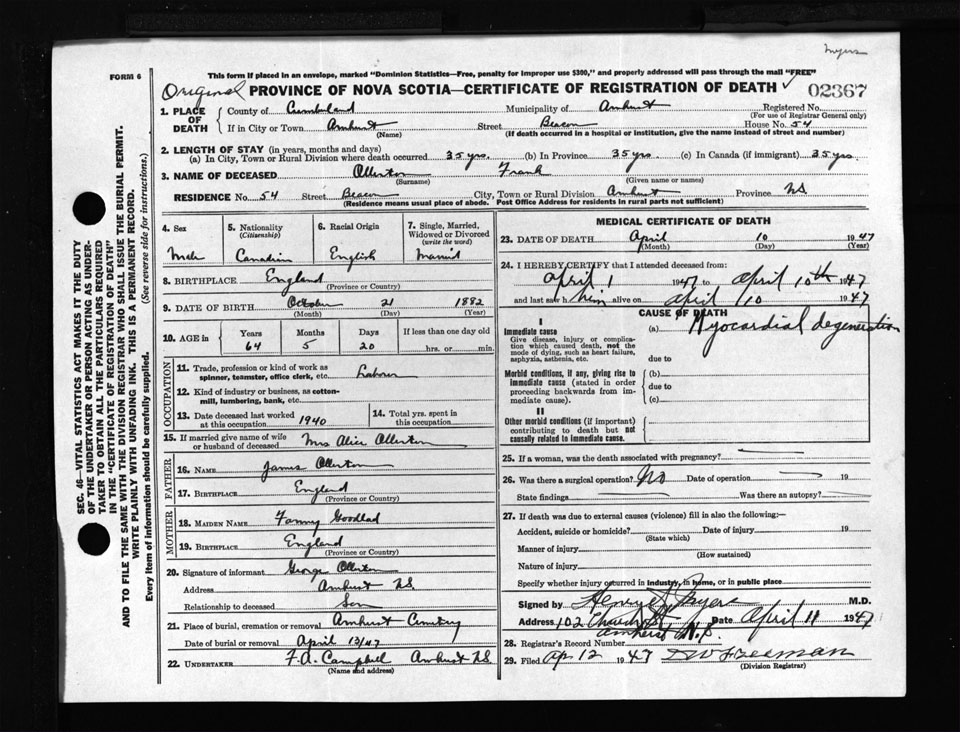 Myers
FORM 6
This form if placed in an envelope, marked "Dominion Statistics—Free, penalty for improper use $300," and properly addressed will pass through the mail "FREE"
Original PROVINCE OF NOVA SCOTIA—CERTIFICATE OF REGISTRATION OF DEATH ✓ 02367
1. PLACE OF DEATH
County of Cumberland Municipality of Amherst Registered No.
(For use of Registrar General only)
If in City or Town Amherst Street Beacon House No. 54
(Name) (If death occurred in a hospital or institution, give the name instead of street and number)
2. LENGTH OF STAY (in years, months and days)
(a) In City, Town or Rural Division where death occurred 35 yrs. (b) In Province 35 yrs. (c) In Canada (if immigrant) 35 yrs.
3. NAME OF DECEASED Ollerton Frank
(Surname) (Given name or names)
RESIDENCE No. 54 Street Beacon City, Town or Rural Division Amherst Province N.S.
(Residence means usual place of abode. Post Office Address for residents in rural parts not sufficient)
4. Sex
Male
5. Nationality
(Citizenship)
Canadian
6. Racial Origin
English
7. Single, Married, Widowed or Divorced
(write the word)
Married
8. BIRTHPLACE England
(Province or Country)
9. DATE OF BIRTH October 21 1882
(Month) (Day) (Year)
10. AGE in Years Months Days If less than one day old
64 5 20 hrs. or min.
OCCUPATION
11. Trade, profession or kind of work as spinner, teamster, office clerk, etc. Labourer
12. Kind of industry or business, as cotton-mill, lumbering, bank, etc.
13. Date deceased last worked at this occupation 1940
14. Total yrs. spent in this occupation
15. If married give name of wife or husband of deceased Mrs Alice Ollerton
FATHER
16. NAME James Ollerton
17. BIRTHPLACE England
(Province or Country)
MOTHER
18. MAIDEN NAME Fanny Goodlad
19. BIRTHPLACE England
(Province or Country)
20. Signature of informant George Ollerton
Address Amherst N.S.
Relationship to deceased Son
21. Place of burial, cremation or removal Amherst Cemetery
Date of burial or removal April 13/47
22. UNDERTAKER F.A. Campbell Amherst N.S.
(Name and address)
MEDICAL CERTIFICATE OF DEATH
23. DATE OF DEATH April 10 1947
(Month) (Day) (Year)
24. I HEREBY CERTIFY that I attended deceased from:
April 1 1947 to April 10th 1947
and last saw him alive on April 10 1947
CAUSE OF DEATH
I
Immediate cause
Give disease, injury or complication which caused death, not the mode of dying, such as heart failure, asphyxia, asthenia, etc.
(a) Myocardial degeneration
due to
Morbid conditions, if any, giving rise to immediate cause (stated in order proceeding backwards from immediate cause).
(b)
due to
(c)
II
Other morbid conditions (if important) contributing to death but not causally related to immediate cause.
25. If a woman, was the death associated with pregnancy?
26. Was there a surgical operation? No Date of operation 19
State findings Was there an autopsy?
27. If death was due to external causes (violence) fill in also the following:—
Accident, suicide or homicide? Date of injury 19
(State which)
Manner of injury
(How sustained)
Nature of injury
Specify whether injury occurred in industry, in home, or in public place
Signed by Henry S. Myers M.D.
Address 102 Church St Date April 11 1947
Amherst N.S.
28. Registrar's Record Number
29. Filed Ap 12 1947 Freeman
(Division Registrar)
SEC. 46—VITAL STATISTICS ACT MAKES IT THE DUTY
OF THE UNDERTAKER OR PERSON ACTING AS UNDER-
TAKER TO OBTAIN ALL THE PARTICULARS REQUIRED
IN THE "CERTIFICATE OF REGISTRATION OF DEATH"
AND TO FILE THE SAME WITH THE DIVISION REGISTRAR WHO SHALL ISSUE THE BURIAL PERMIT.
WRITE PLAINLY WITH UNFADING INK. THIS IS A PERMANENT RECORD.
Every item of information should be carefully supplied. (See reverse side for instructions.)